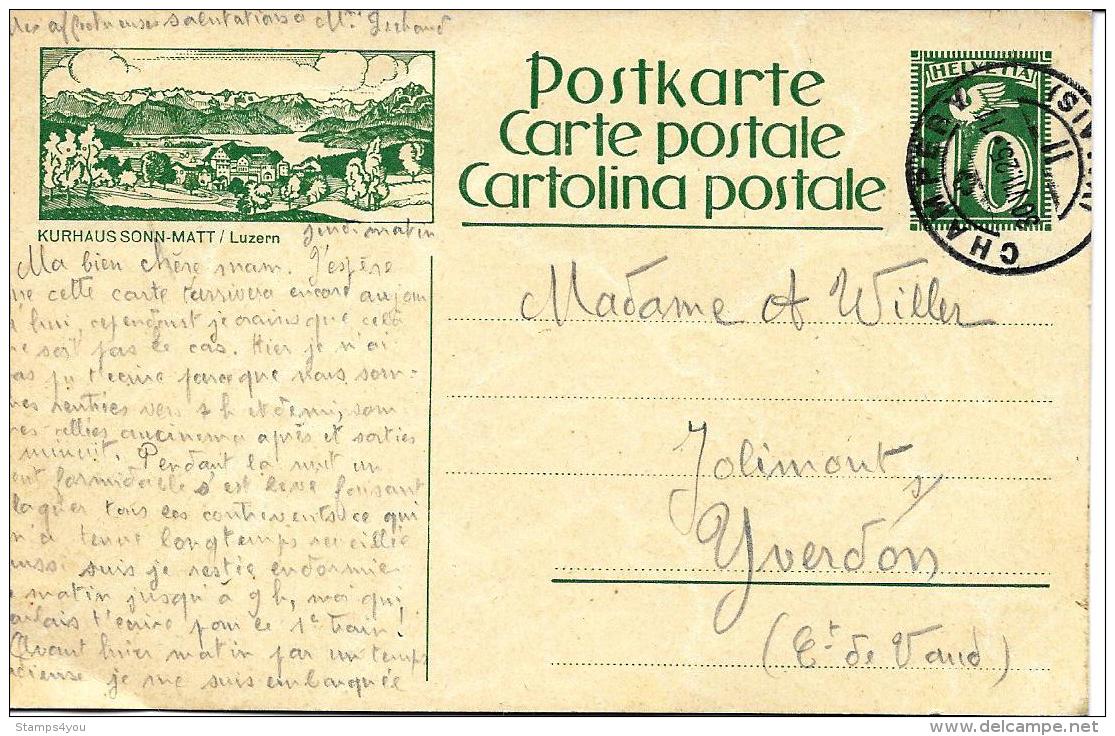 affectueuses salutations a Mme
Postkarte
Carte postale
Cartolina postale
HELVETIA
CHAMPERY
KURHAUS SONN-MATT / Luzern
jeudi matin
Ma bien chère mam. J'espère
cette carte t'arrivera encore aujou
hui, cependant je crains que cela
soit pas le cas. Hier je n'ai
pas pu t'écrire parce que nous som-
mes rentrées vers 7 h et demi, som
mes allées au cinema après et sorties
minuit. Pendant la nuit un
ent formidable s'est levé faisant
laquer tous les contrevents ce qui
m'a tenue longtemps reveillée
aussi suis je restée endormie
matin jusqu'à 9 h, moi qui
t'écrire pour le 1e train.
Avant hier matin par un temps
je me suis embarquée
Madame A Willer
Jolimont
s/
Yverdon
(Ct de Vaud)
Stamps4you
www.delcampe.net